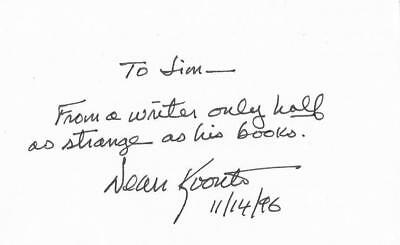 To Jim—
From a writer only half
as strange as his books.
Dean Koontz
11/14/96